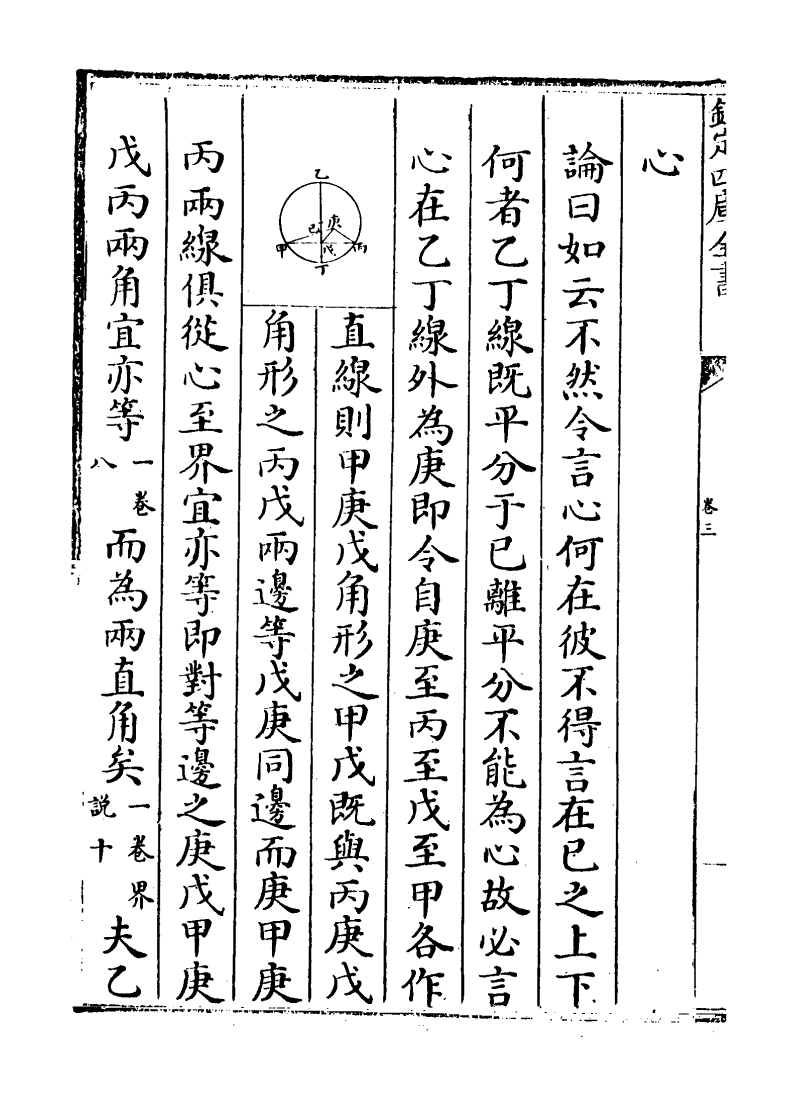 欽定四庫全書
卷三
心
論曰如云不然令言心何在彼不得言在己之上下
何者乙丁線既平分于己離平分不能為心故必言
心在乙丁線外為庚即令自庚至丙至戊至甲各作
直線則甲庚戊角形之甲戊既與丙庚戊
角形之丙戊兩邊等戊庚同邊而庚甲庚
乙
庚
己
甲
戊
丙
丁
丙兩線俱從心至界宜亦等即對等邊之庚戊甲庚
戊丙兩角宜亦等一卷八而為兩直角矣一卷界說十夫乙